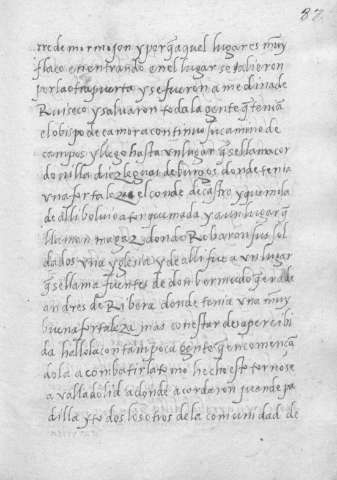 87
rre de mormojon y porq̄ aquel lugar es muy
flaco en entrando en el lugar se salieron
por la otra puerta y se fueron a medina de
Ruiseco y salvaron toda la gente q̄ tenia
el obispo de camora continuo su camino de
campos y llego hasta un lugar q̄ se llama cor
dovilla diez leguas de burgos donde tenia
una fortaleza el conde de castro y quemola
de alli bolvio a torquemada y a un lugar q̄
llaman magaz donde Robaron sus sol
dados una yglesia y de alli fue a un lugar
q̄ se llama fuentes de don bermudo q̄ era de
andres de Ribera donde tenia una muy
buena fortaleza mas con estar desapercibi
da hallola con tan poca gente q̄ en comencā
dola a combatir la tomo hecho esto tornose
a valladolid adonde acordaron juan de pa
dilla y todos los otros de la comunidad de